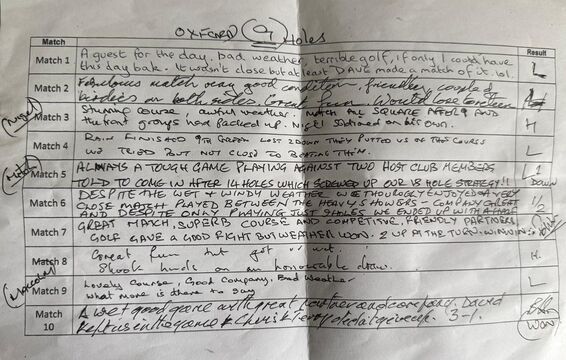 OXFORD (9) Holes
Match Result
Match 1 A quest for the day, bad weather, terrible golf, if only I could have
this day bak. It wasn't close but at least DAVE made a match of it. lol. L
Match 2 Fabulous match very good condition, friendly couple of
birdies on both sides. Great fun. Would lose
Match 3 Stunning course, awful weather. Match ALL SQUARE AFTER 9 AND
the front groups had packed up. Nigel on his own. H
Match 4 RAIN FINISHED 9TH GREEN LOST 2 DOWN THEY PUTTED US OFF THE COURSE
WE TRIED BUT NOT CLOSE TO BEATING THEM. L
Match 5 ALWAYS A TOUGH GAME PLAYING AGAINST TWO HOST CLUB MEMBERS
TOLD TO COME IN AFTER 14 HOLES WHICH SCREWED UP OUR 18 HOLE STRATEGY!! L 1 DOWN
Match 6 DESPITE THE WET + WINDY WEATHER WE THOUROGLY ENJOYED A VERY
CLOSE MATCH PLAYED BETWEEN THE HEAVY SHOWERS - COMPANY GREAT
AND DESPITE ONLY PLAYING JUST 9 HOLES WE ENDED UP WITH A HALF 1/2
Match 7 GREAT MATCH, SUPERB COURSE AND COMPETITIVE, FRIENDLY PARTNERS
GOLF GAVE A GOOD FIGHT BUT WEATHER WON. 2 UP AT THE TURN.
Match 8 Great fun but got wet.
Shook hands on an honourable draw. H.
Match 9 Lovely Course, Good Company, Bad Weather
What more is there to say L
Match 10 A wet good game with great partner and company. David
kept us in the game & Chris & didn't give up. 3-1. WON